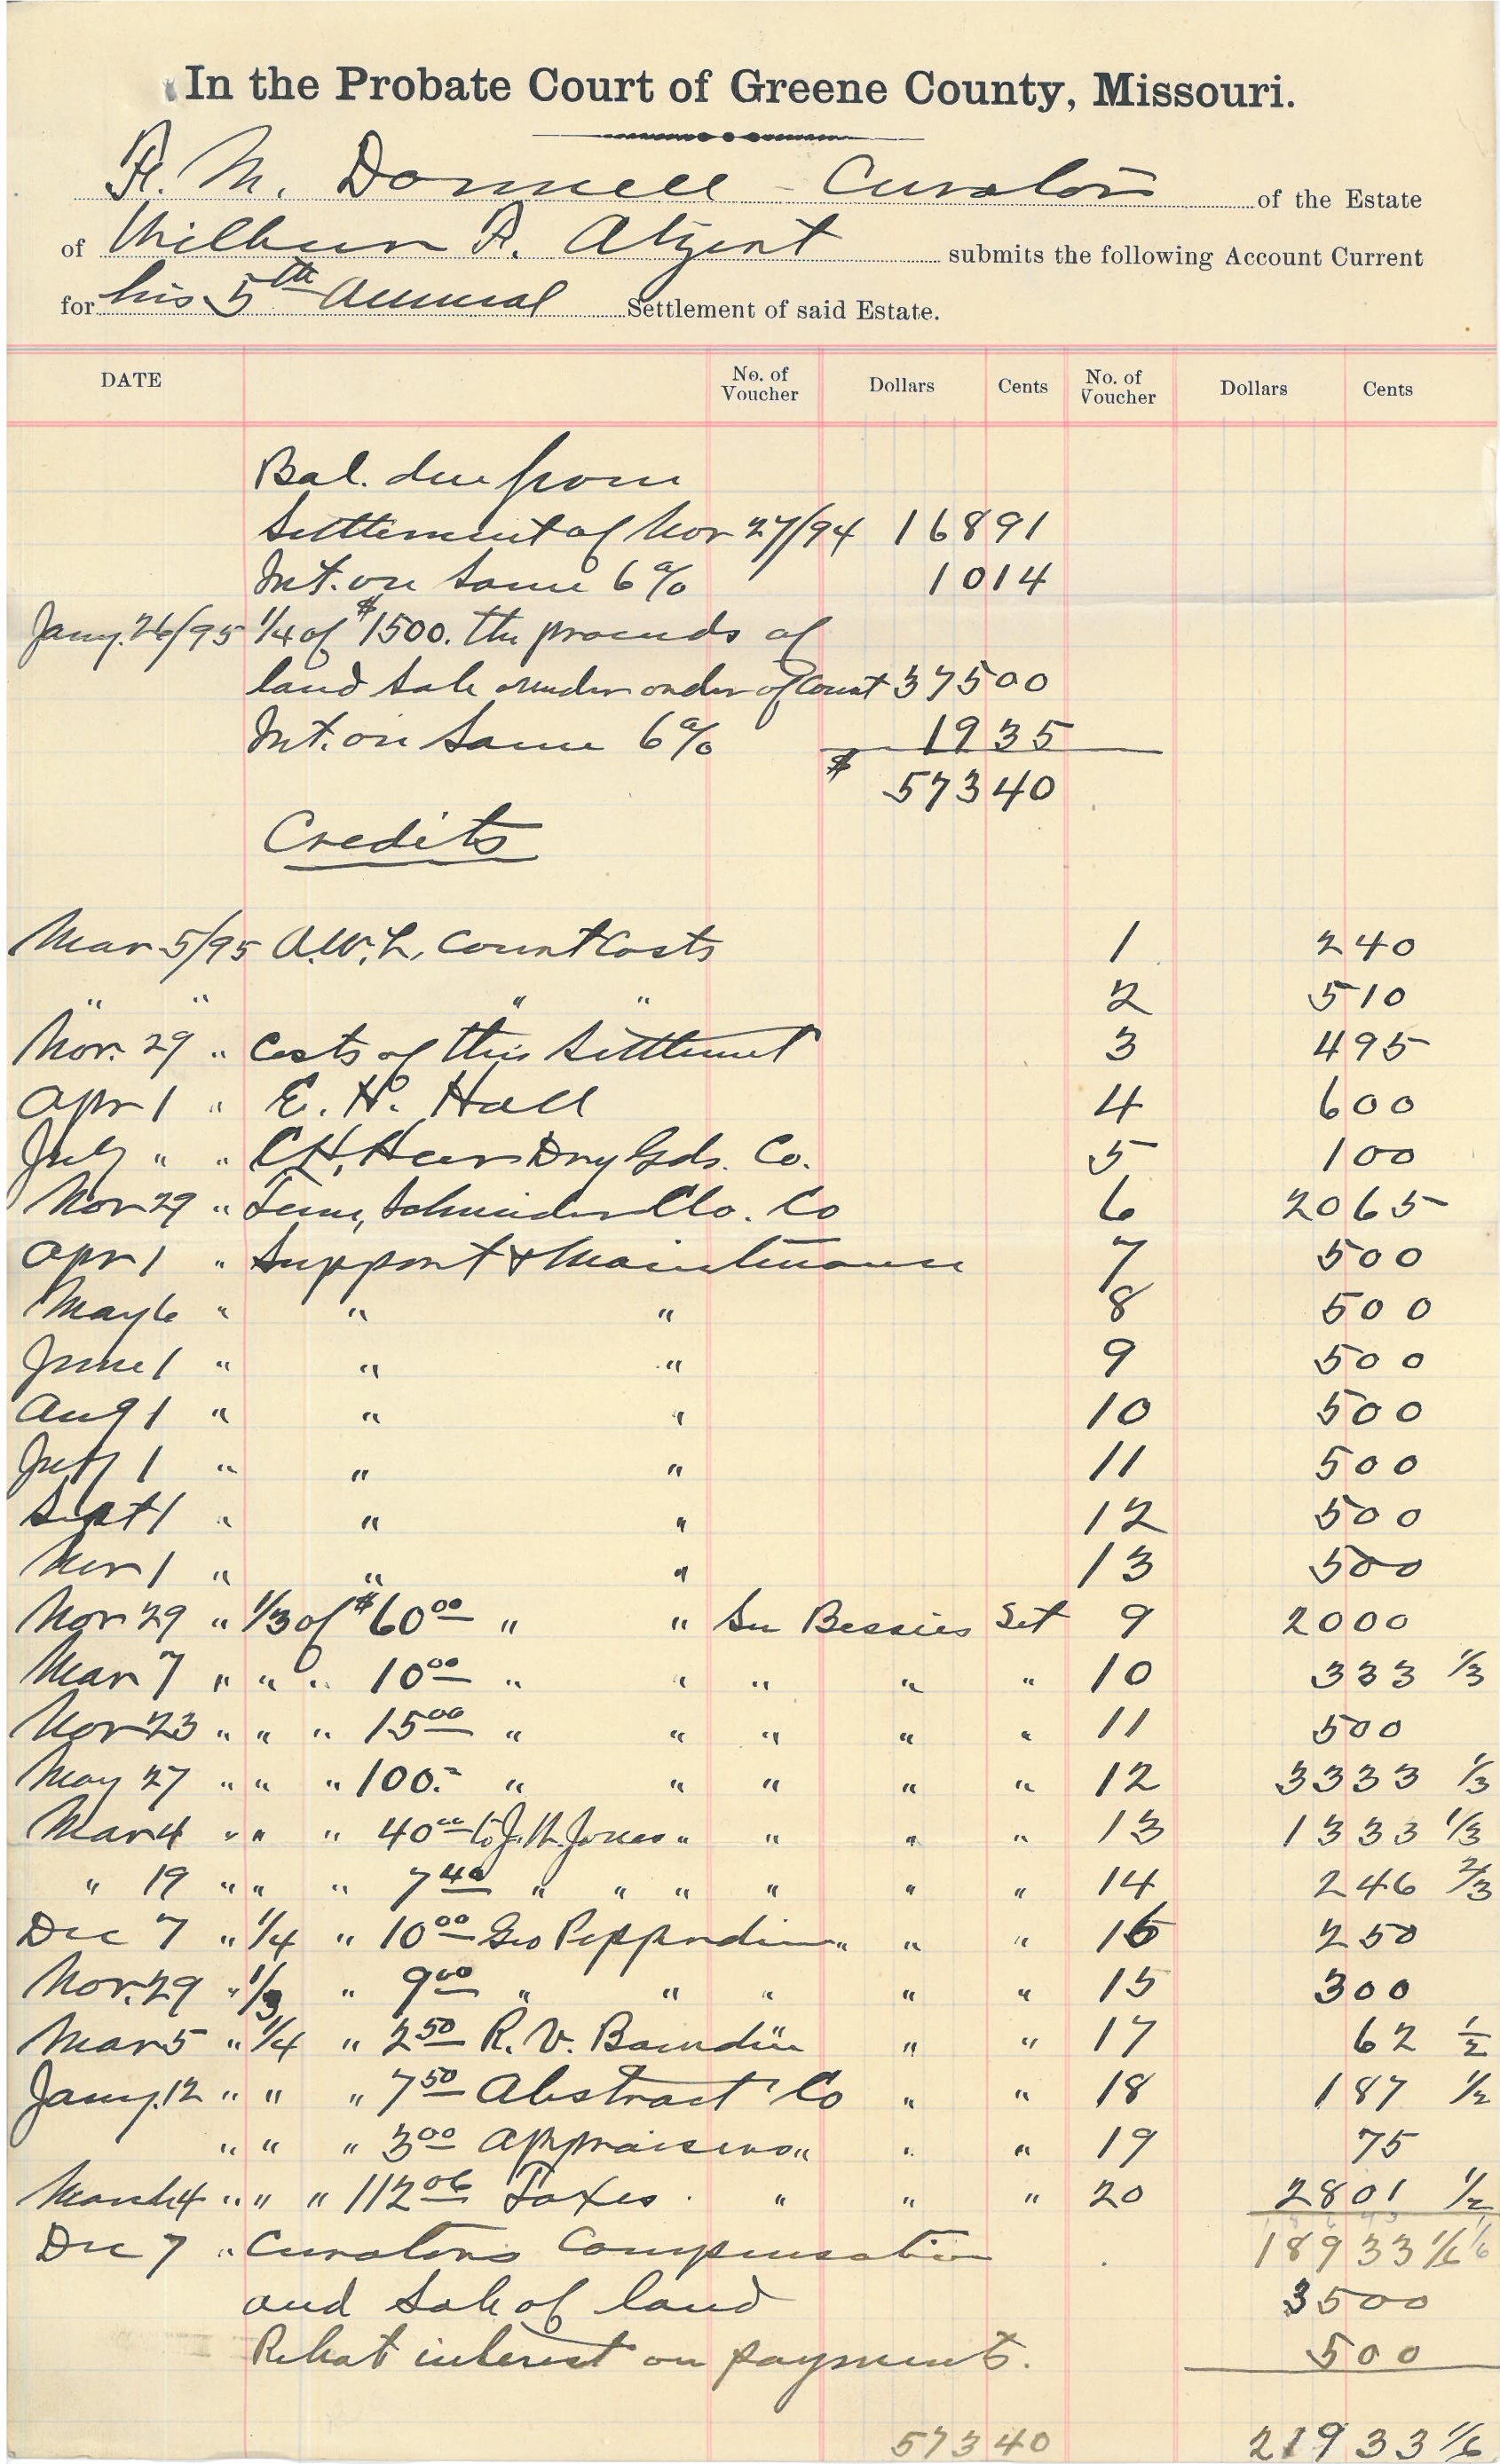 In the Probate Court of Greene County, Missouri.
F. M. Donnell - Curator of the Estate
of Wilbur F. Atzent submits the following Account Current
for his 5th Annual Settlement of said Estate.
DATE No. of Voucher Dollars Cents No. of Voucher Dollars Cents
Bal. due from
Settlement of Nov 27/94 168 91
Int. on Same 6% 10 14
Jany. 26/95 1/4 of $1500. the proceeds of
land sale under order of Court 375 00
Int. on Same 6% 19 35
$ 573 40
Credits
Mar 5/95 A.W.L. Court Costs 1 2 40
" " " " 2 5 10
Nov. 29 " Costs of this Settlement 3 4 95
Apr 1 " E. H. Hall 4 6 00
July " " C.H. Heer Dry Gds. Co. 5 1 00
Nov 29 " Schneider Clo. Co 6 20 65
Apr 1 " Support & Maintenance 7 5 00
May 6 " " " 8 5 00
June 1 " " " 9 5 00
Aug 1 " " " 10 5 00
July 1 " " " 11 5 00
Sept 1 " " " 12 5 00
Nov 1 " " " 13 5 00
Nov 29 " 1/3 of $60 00 " " See Bessies Set 9 20 00
Mar 7 " " " 10 00 " " " " " 10 3 33 1/3
Nov 23 " " " 15 00 " " " " " 11 5 00
May 27 " " " 100.= " " " " " 12 33 33 1/3
Mar 4 " " " 40 00 to J. H. Jones " " " " 13 13 33 1/3
" 19 " " " 7 40 " " " " " " 14 2 46 2/3
Dec 7 " 1/4 " 10 00 Geo Pepperdine " " " 16 2 50
Nov. 29 " 1/3 " 9 00 " " " " " 15 3 00
Mar 5 " 1/4 " 2 50 R. V. " " 17 62 1/2
Jany. 12 " " " 7 50 Abstract Co " " 18 1 87 1/2
" " " 3 00 Appraisers " " " 19 75
March 4 " " " 112 06 Taxes. " " " 20 28 01 1/2
Dec 7 " Curators Compensation 189 33 1/6
and Sale of land 35 00
Rebat interest on payments. 5 00
573 40 219 33 1/6